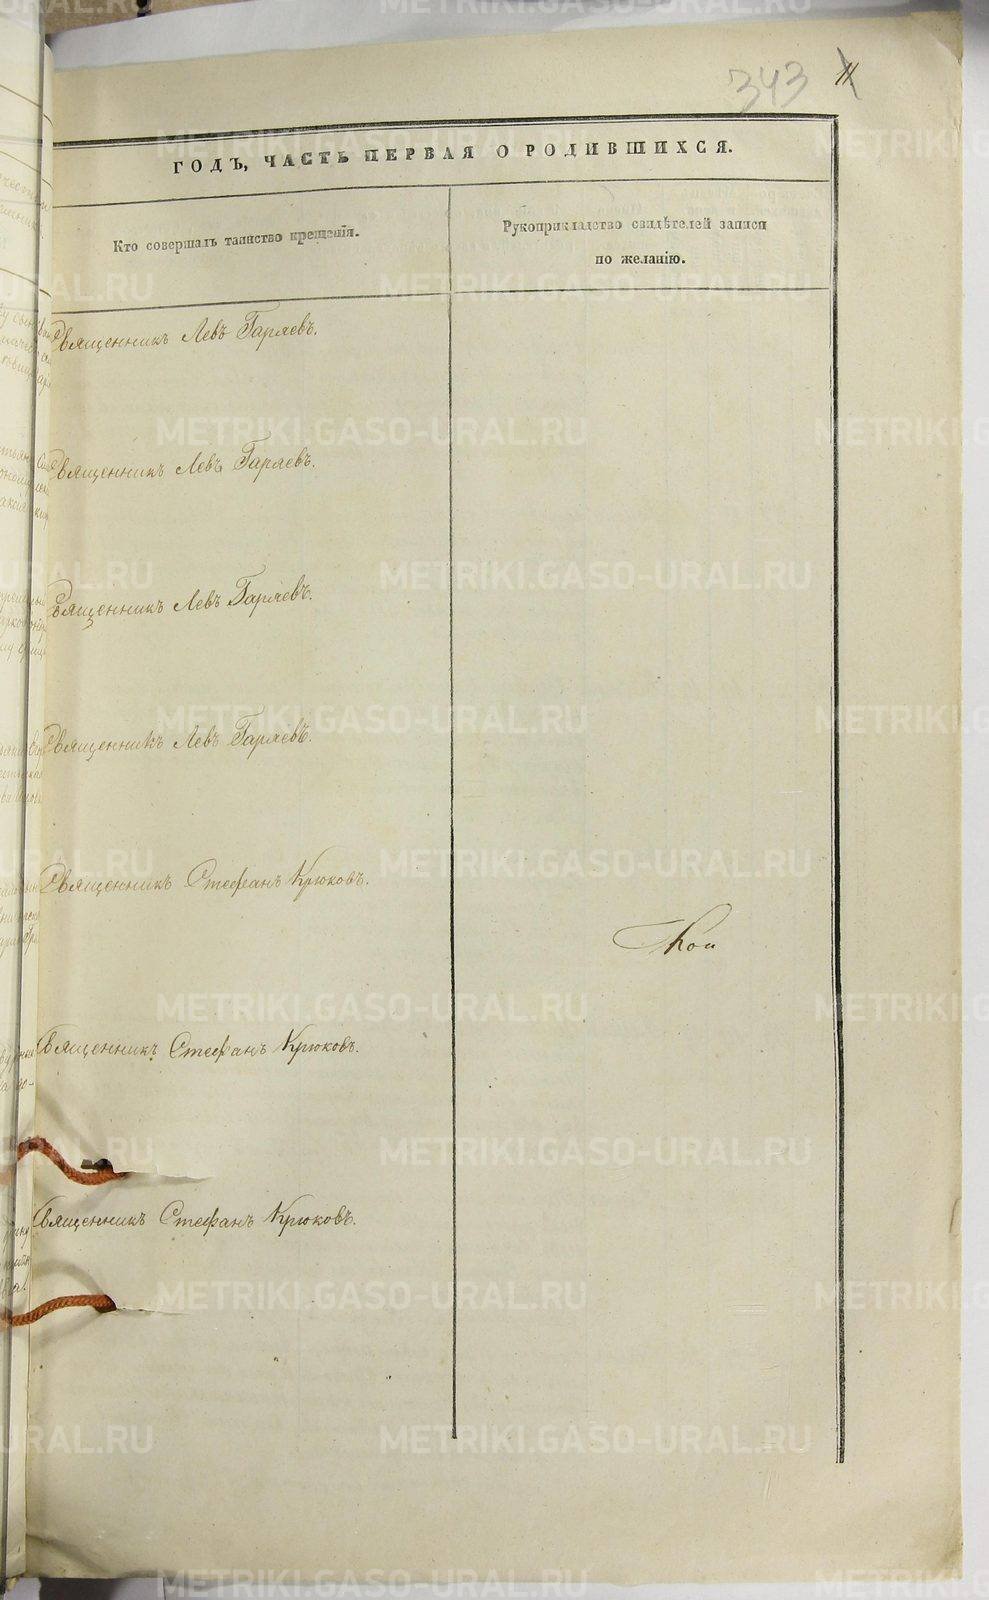 343 11
ГОДЪ, ЧАСТЬ ПЕРВАЯ О РОДИВШИХСЯ.
Кто совершалъ таинство крещенія.
Рукоприкладство свидѣтелей записи
по желанію.
Священникъ Левъ Гаряевъ.
Священникъ Левъ Гаряевъ.
Священникъ Левъ Гаряевъ.
Священникъ Левъ Гаряевъ.
Священникъ Стефанъ Крюковъ.
Священникъ Стефанъ Крюковъ.
Священникъ Стефанъ Крюковъ.
METRIKI.GASO-URAL.RU